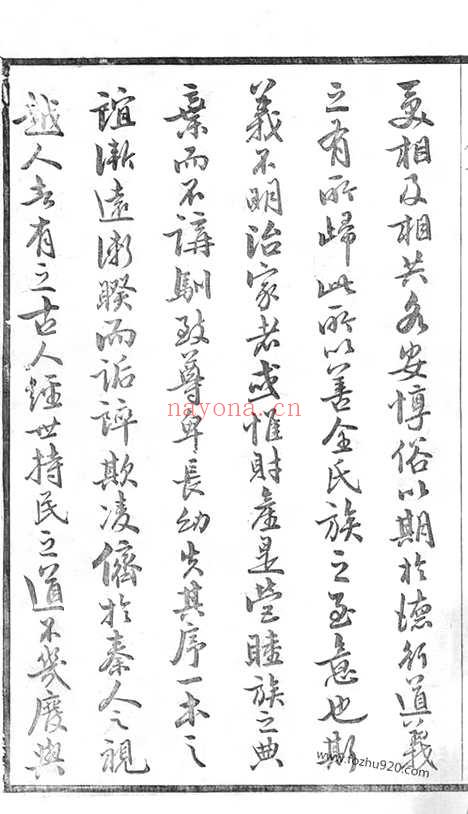 友相及相共各安惇俗以期於德行道義
之有所歸此所以善全氏族之至意也斯
義不明治家者或惟財產是營睦族之典
棄而不講馴致尊卑長幼失其序一本之
誼漸遠漸睽而詬誶欺凌儕於秦人之視
越人者有之古人經世持民之道不幾廢與
nayona.cn
www.fozhu920.com